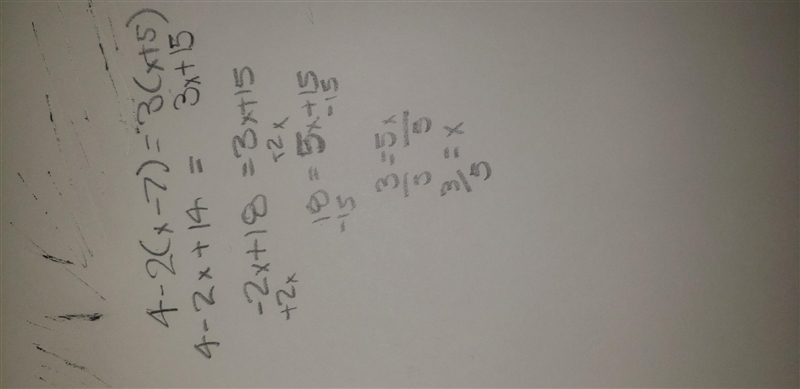 4-2(x-7)=3(x+5)
4-2x+14 = 3x+15
-2x+18 =3x+15
+2x +2x
18 = 5x+15
-15 -15
3=5x
/5 /5
3/5 =x